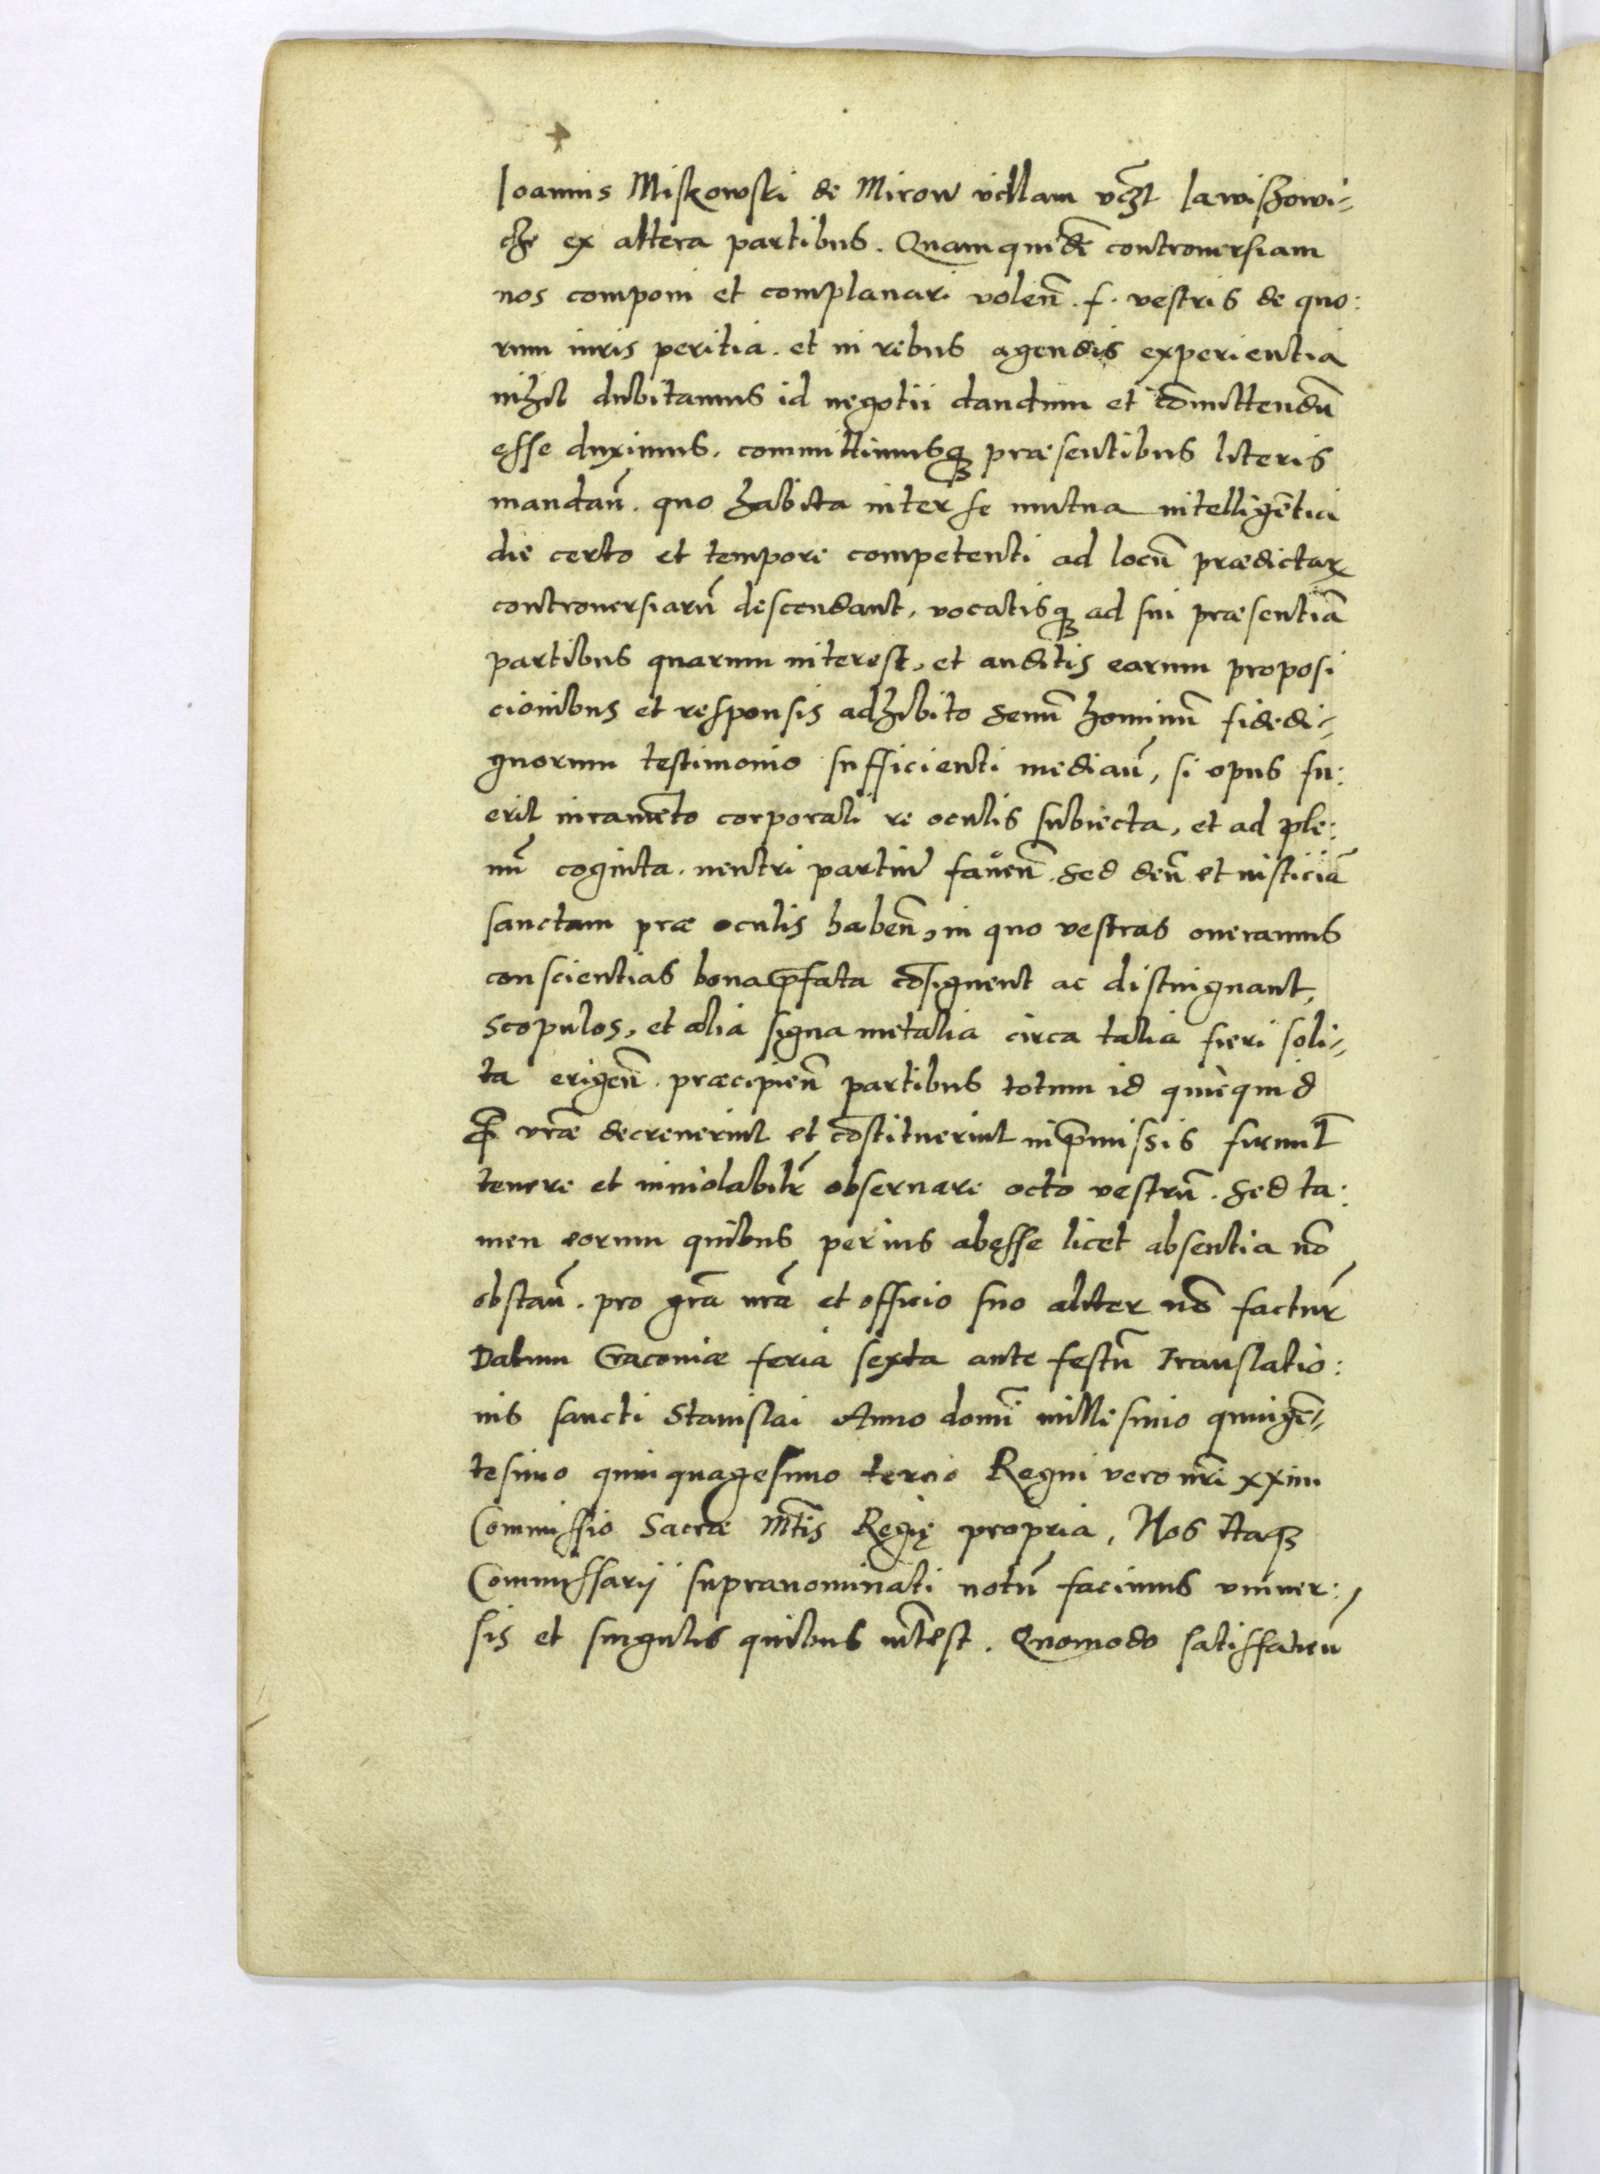 Ioannis Miskowski de Mirow villam vczt Iawiszowi-
cze ex altera partibus. Quamquidē controuersiam
nos componi et complanari volen̄. f. vestris de quo:
rum iuris peritia. et in rebus agendis experientia
nihil dubitamus id negotii dandum et cōmittendū
esse duximus. committimusqʒ præsentibus literis
mandan̄. quo habita inter se mutua intelligētia
die certo et tempore competenti ad locū prædictaꝝ
controuersiarū descendant, vocatisqʒ ad sui præsentiā
partibus quarum interest, et auditis earum proposi
cionibus et responsis adhibito senū hominū fidedi-
gnorum testimonio sufficienti median̄, si opus fu:
erit iuramēto corporali re oculis subiecta, et ad ple:
nū cognita. neutri partiū fauen̄. sed deū et iusticiā
sanctam præ oculis haben̄, in quo vestras oneramus
conscientias bona p̄fata cōsignent ac distinguant,
scopulos, et alia signa metalia circa talia fieri soli-
ta erigen̄. præcipien̄ partibus totum id quicquid
F vr̄æ decreuerint et cōstituerint in p̄missis firmit̄
tenere et inuiolabilr̄ obseruare octo vestrū. Sed ta:
men eorum quibus per ius abesse licet absentia nō
obstan̄. pro gr̄a nr̄a et officio suo aliter nō factur̄
Datum Cracouiæ feria sexta ante festū Translatio:
nis sancti Stanislai Anno domī millesimo quingē-
tesimo quinquagesimo tercio Regni vero nr̄i xxiiii
Commissio Sacræ Mt̄is Regię propria, Nos Itaqʒ
Commissarij supranominati notū facimus vniuer:
sis et singulis quibus int̄est. Quomodo satisfacien̄